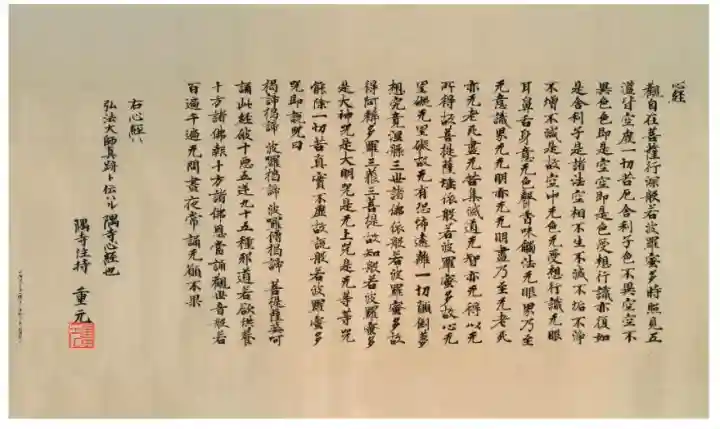 心経
観自在菩薩行深般若波羅蜜多時照見五
蘊皆空度一切苦厄舎利子色不異空空不
異色色即是空空即是色受想行識亦復如
是舎利子是諸法空相不生不滅不垢不浄
不増不減是故空中无色无受想行識无眼
耳鼻舌身意无色聲香味觸法无眼界乃至
无意識界无无明亦无无明盡乃至无老死
亦无老死盡无苦集滅道无智亦无得以无
所得故菩提薩埵依般若波羅蜜多故心无
罣礙无罣礙故无有恐怖遠離一切顛倒夢
想究竟涅槃三世諸佛依般若波羅蜜多故
得阿耨多羅三藐三菩提故知般若波羅蜜多
是大神咒是大明咒是无上咒是无等等咒
能除一切苦真實不虚故説般若波羅蜜多
咒即説咒曰
揭諦揭諦 波羅揭諦 波羅僧揭諦 菩提薩婆訶
誦此經破十惡五逆九十五種邪道若欲供養
十方諸佛報十方諸佛恩當誦觀世音般若
百遍千遍无間晝夜常誦无願不果
右心経ハ
弘法大師真跡ト伝ハル隅寺心経也
隅寺住持 重元